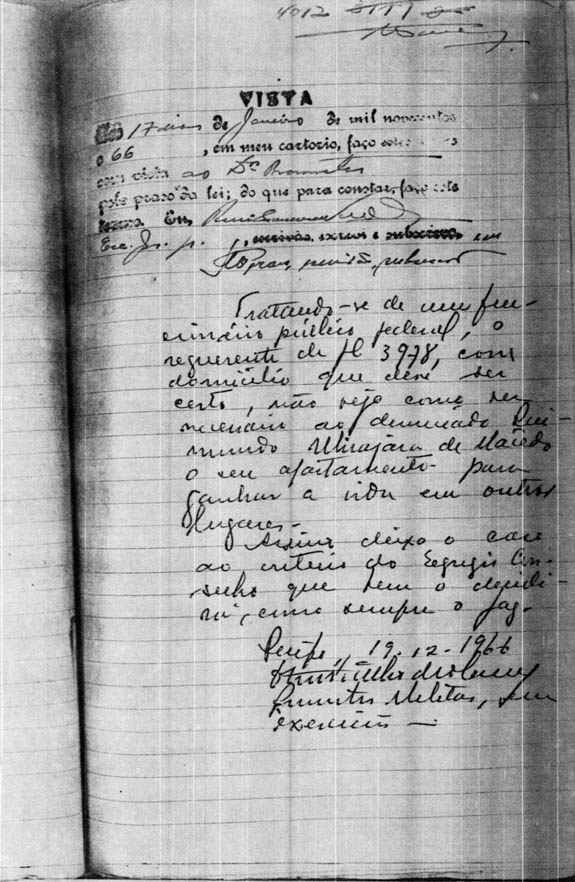 4012
VISTA
17 dias de Janeiro de mil novecentos
e 66, em meu cartorio, faço estes autos
com vista ao Dr. Promotor
pelo praso da lei; do que para constar, faço este
termo. Eu,
, escrivão, escrevi e subscrevo.
Tratando-se de um fun-
cionário público federal, o
requerente de fl 3978, com
domicílio que deve ser
certo, não vejo como ser
necessário ao denunciado Rai-
mundo Ubirajara de Macedo
o seu afastamento para
ganhar a vida em outros
lugares-
Assim deixo o caso
ao critério do Egrégio Con-
selho que bem o decidi-
rá, como sempre o faz.
Recife, 19-12-1966
Promotor Militar, em
exercício -